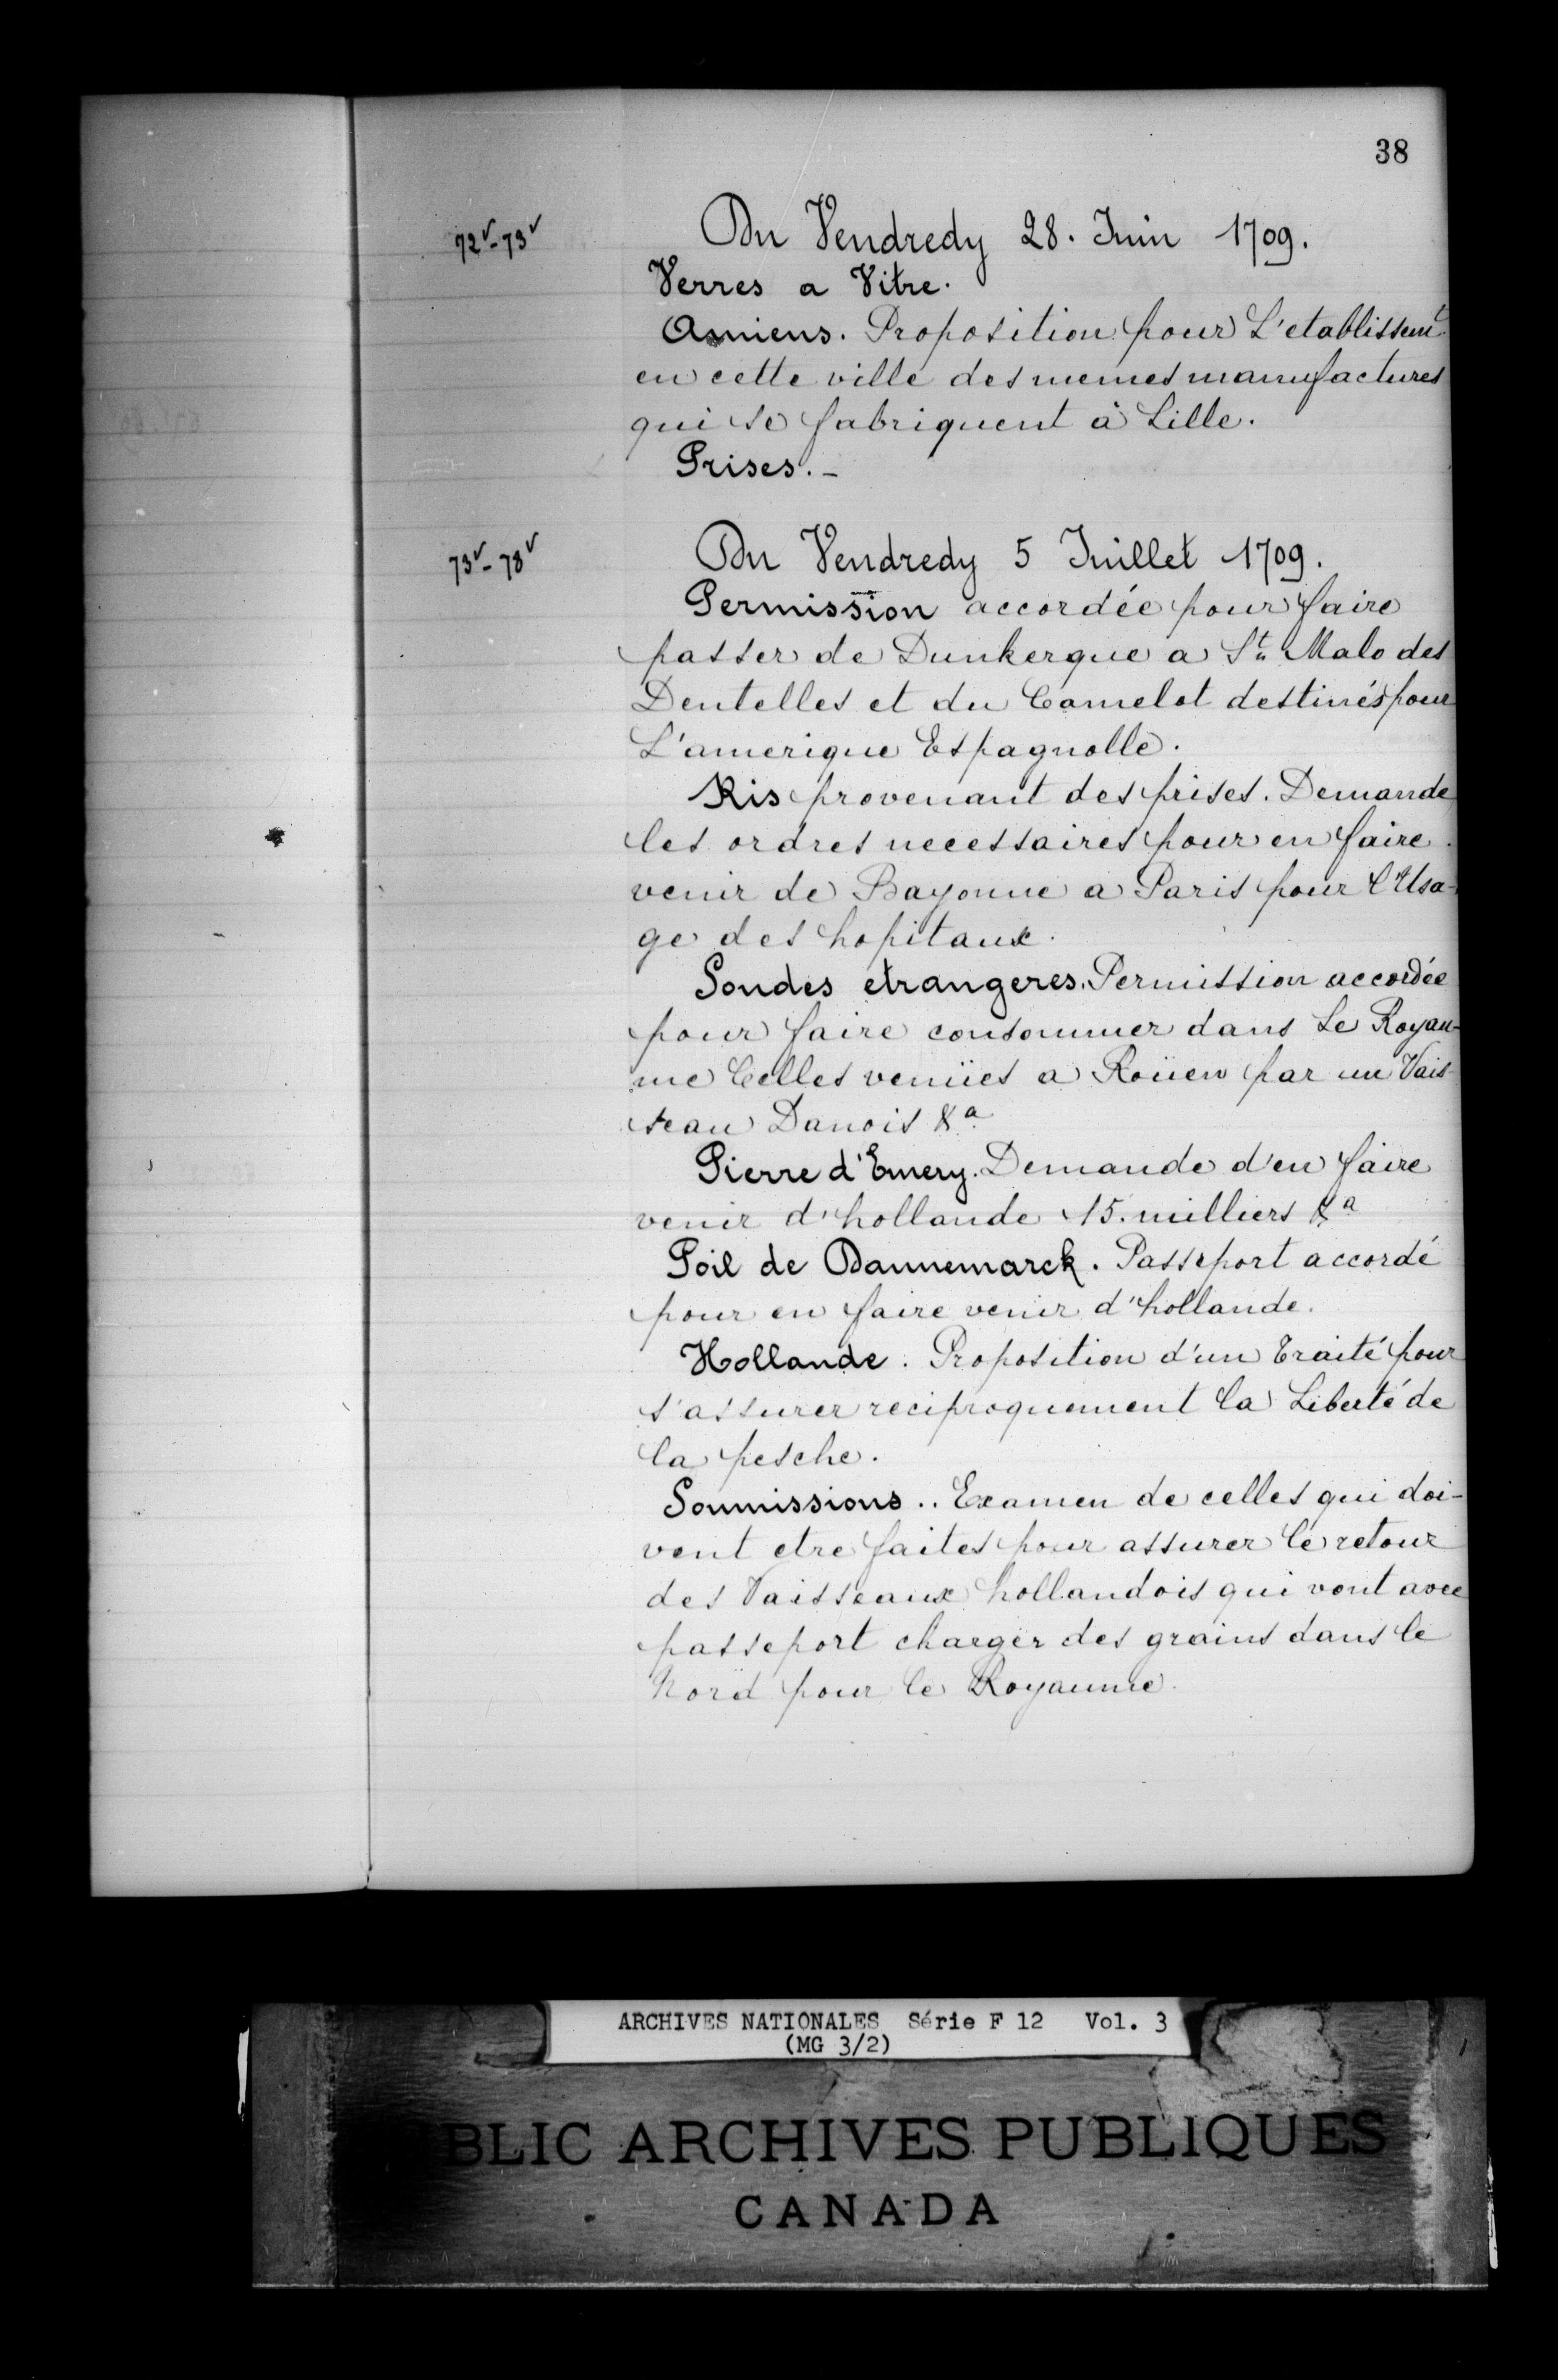 38
72v-73v
Du Vendredy 28. Juin 1709.
Verres a Vitre.
Amiens. Proposition pour L'etablissemt
en cette ville des memes manufactures
qui se fabriquent à Lille.
Prises.-
73v-78v
Du Vendredy 5 Juillet 1709.
Permission accordée pour faire
passer de Dunkerque a St. Malo des
Dentelles et du Camelot destinés pour
L'amerique Espagnolle.
Ris provenant des prises. Demande
les ordres necessaires pour en faire
venir de Bayonne a Paris pour l'Usa-
ge des hopitaux.
Soudes etrangeres. Permission accordée
pour faire consommer dans Le Royau-
me Celles venües a Roüen par un Vais-
seau Danois &a
Pierre d'Emery. Demande d'en faire
venir d'hollande 15. milliers &a
Poil de Dannemarck. Passeport accordé
pour en faire venir d'hollande.
Hollande. Proposition d'un traité pour
s'assurer reciproquement la Liberté de
la pesche.
Soumissions.. Examen de celles qui doi-
vent etre faites pour assurer le retour
des Vaisseaux hollandois qui vont avec
passeport charger des grains dans le
Nord pour le Royaume.
ARCHIVES NATIONALES Série F 12 Vol. 3
(MG 3/2)
BLIC ARCHIVES PUBLIQUES
CANADA